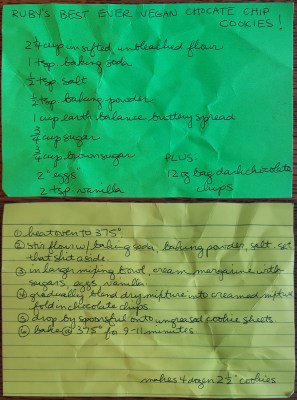 RUBY'S BEST EVER VEGAN CHOCATE CHIP
COOKIES!
2 1/4 cup unsifted, unbleached flour
1 tsp. baking soda
1/2 tsp. salt
1/2 tsp. baking powder
1 cup earth balance buttery spread
3/4 cup sugar
3/4 cup brown sugar PLUS:
2 "eggs 12 oz bag dark chocolate
2 tsp. vanilla chips
① heat oven to 375°
② stir flour w/ baking soda, baking powder, salt set
that shit aside.
③ in large mixing bowl, cream margarine with
sugars, eggs, vanilla
④ gradually blend dry mixture into creamed mixture
fold in chocolate chips.
⑤ drop by spoonful onto ungreased cookie sheets.
⑥ bake @ 375° for 9-11 minutes.
makes 4 dozen 2 1/2" cookies